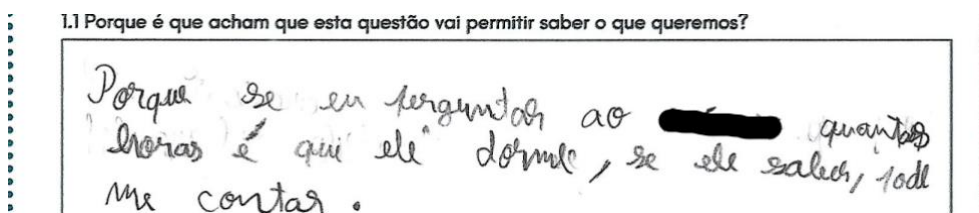 1.1 Porque é que acham que esta questão vai permitir saber o que queremos?
Porque se eu perguntar ao quantas
horas é que ele dorme, se ele saber, pode
me contar.